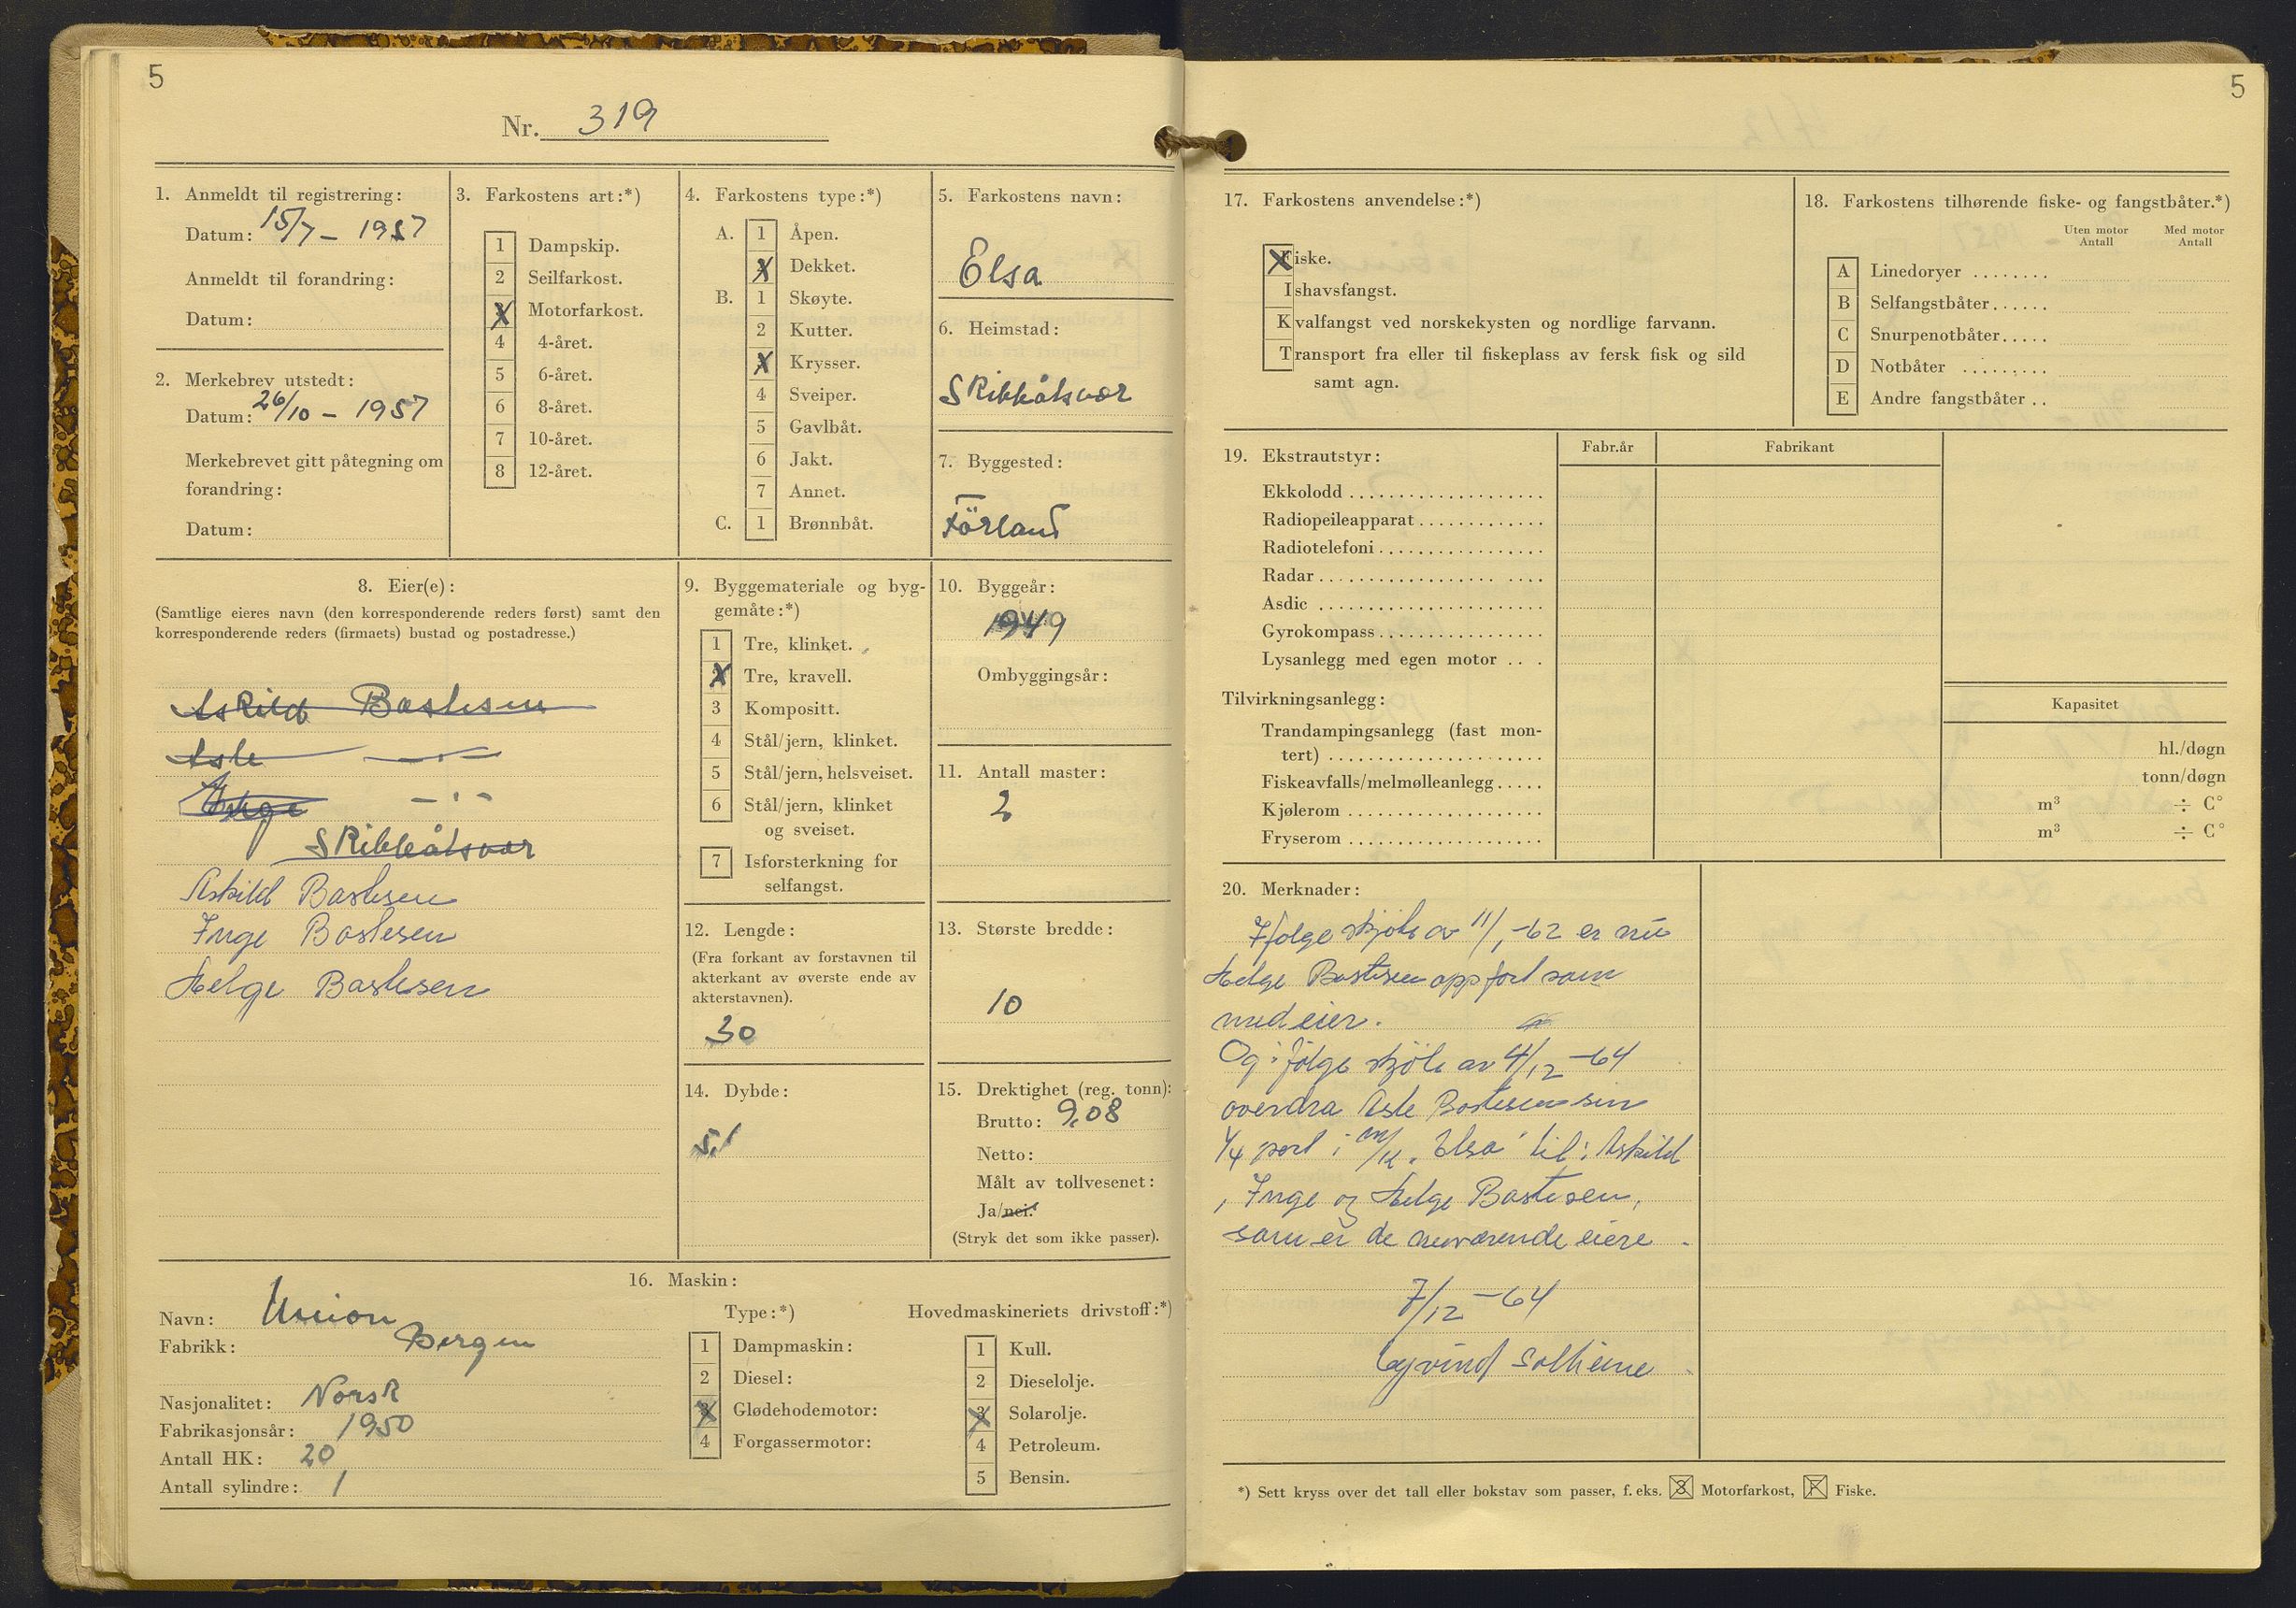 5
Nr. 319
1. Anmeldt til registrering:
Datum: 15/7 - 1957
Anmeldt til forandring:
Datum:
2. Merkebrev utstedt:
Datum: 26/10 - 1957
Merkebrevet gitt påtegning om
forandring:
Datum:
3. Farkostens art:*)
1 Dampskip.
2 Seilfarkost.
X Motorfarkost.
4 4-året.
5 6-året.
6 8-året.
7 10-året.
8 12-året.
4. Farkostens type:*)
A. 1 Åpen.
X Dekket.
B. 1 Skøyte.
2 Kutter.
X Krysser.
4 Sveiper.
5 Gavlbåt.
6 Jakt.
7 Annet.
C. 1 Brønnbåt.
5. Farkostens navn:
Elsa
6. Heimstad:
Skibbåtsvær
7. Byggested:
Förland
8. Eier(e):
(Samtlige eieres navn (den korresponderende reders først) samt den
korresponderende reders (firmaets) bustad og postadresse.)
Askild Bastesen
Asle —"—
Inge -"-
Skibbåtsvær
Askild Bastesen
Inge Bastesen
Helge Bastesen
9. Byggemateriale og byg-
gemåte:*)
1 Tre, klinket.
X Tre, kravell.
3 Kompositt.
4 Stål/jern, klinket.
5 Stål/jern, helsveiset.
6 Stål/jern, klinket
og sveiset.
7 Isforsterkning for
selfangst.
10. Byggeår:
1949
Ombyggingsår:
11. Antall master:
2
12. Lengde:
(Fra forkant av forstavnen til
akterkant av øverste ende av
akterstavnen).
30
13. Største bredde:
10
14. Dybde:
5,1
15. Drektighet (reg. tonn):
Brutto: 9,08
Netto:
Målt av tollvesenet:
Ja/nei.
(Stryk det som ikke passer).
16. Maskin:
Navn: Union
Fabrikk: Bergen
Nasjonalitet: Norsk
Fabrikasjonsår: 1950
Antall HK: 20
Antall sylindre: 1
Type:*)
1 Dampmaskin:
2 Diesel:
3 Glødehodemotor:
4 Forgassermotor:
Hovedmaskineriets drivstoff:*)
1 Kull.
2 Dieselolje.
3 Solarolje.
4 Petroleum.
5 Bensin.
5
17. Farkostens anvendelse:*)
Fiske.
Ishavsfangst.
Kvalfangst ved norskekysten og nordlige farvann.
Transport fra eller til fiskeplass av fersk fisk og sild
samt agn.
18. Farkostens tilhørende fiske- og fangstbåter.*)
Uten motor Med motor
Antall Antall
A Linedoryer ........
B Selfangstbåter......
C Snurpenotbåter.....
D Notbåter .........
E Andre fangstbåter ..
19. Ekstrautstyr:
Fabr.år Fabrikant
Ekkolodd ....................
Radiopeileapparat.............
Radiotelefoni.................
Radar........................
Asdic .......................
Gyrokompass.................
Lysanlegg med egen motor ...
Tilvirkningsanlegg:
Kapasitet
Trandampingsanlegg (fast mon-
tert) ...................... hl./døgn
Fiskeavfalls/melmølleanlegg..... tonn/døgn
Kjølerom .................... m³ ÷ C°
Fryserom .................... m³ ÷ C°
20. Merknader:
Ifølge skjöte av 11/1 -62 er nu
Helge Bastesen oppfört som
medeier.
Og i følge skjöte av 4/12 -64
overdra Asle Bastesen sin
1/4 part i m/k. "Elsa" til: Askild
, Inge og Helge Bastesen,
som er de nuværende eiere.
7/12 -64
Eyvind Solheim
*) Sett kryss over det tall eller bokstav som passer, f. eks. 3 Motorfarkost, F Fiske.